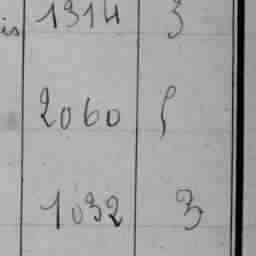 is 1314 3
2060 5
1032 3